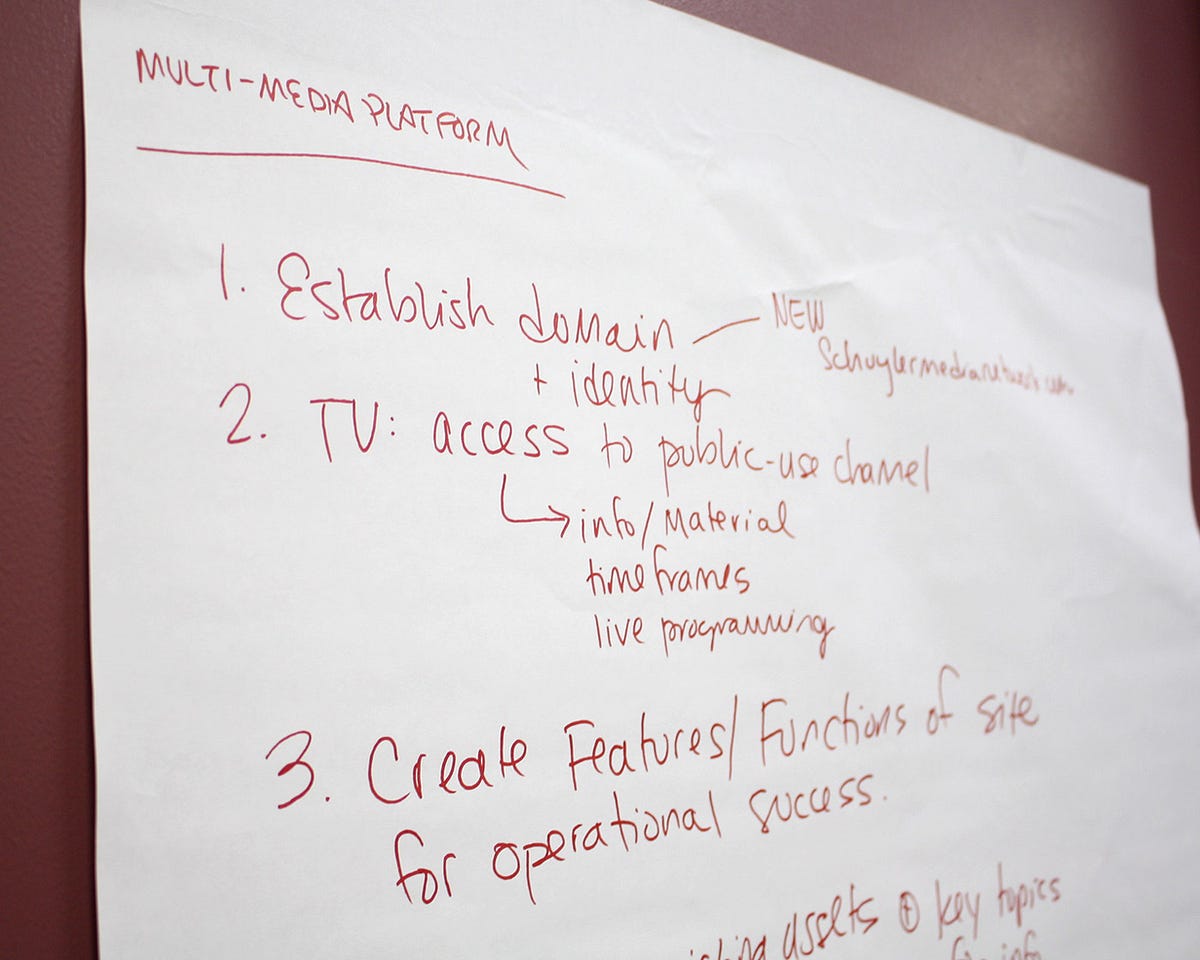 MULTI-MEDIA PLATFORM
1. Establish domain — NEW
Schuylermedianetwork.com
+ identity
2. TV: access to public-use channel
↳ info/material
timeframes
live programming
3. Create Features/Functions of site
for operational success.
assets ⊕ key topics
info